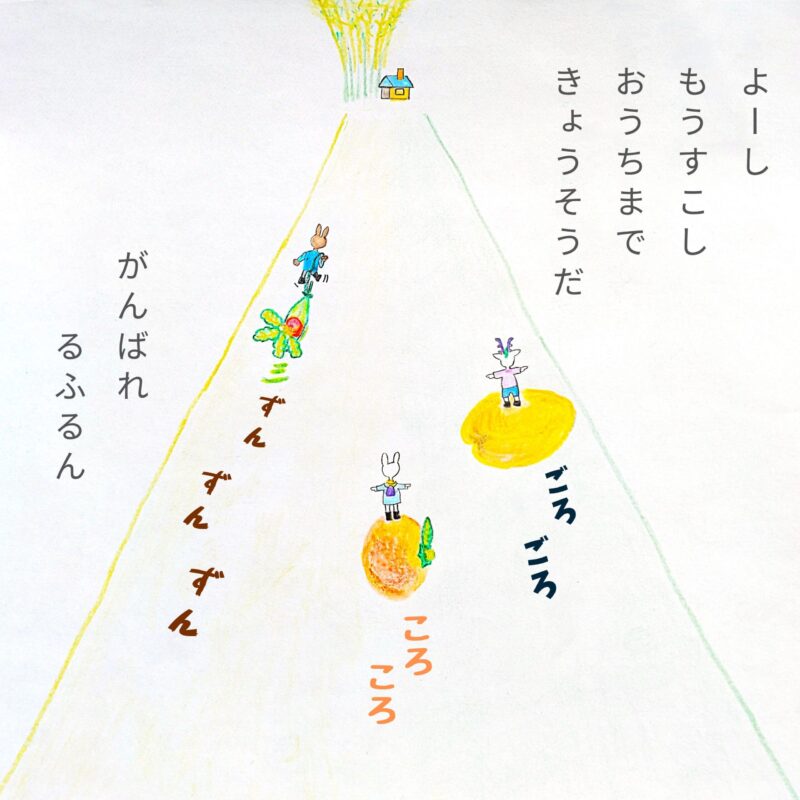 よーし
もうすこし
おうちまで
きょうそうだ
ごろ
ごろ
ころ
ころ
ずん
ずん
ずん
がんばれ
るふるん